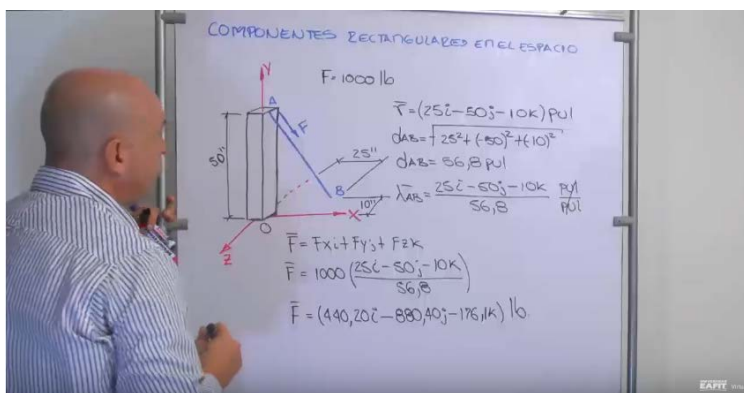 COMPONENTES RECTANGULARES EN EL ESPACIO
F=1000 lb
Y
A
F
50"
25"
B
10"
X
O
Z
r̄=(25i-50j-10K) pul
dAB=√25²+(-50)²+(-10)²
dAB= 56,8 pul
λ̄AB= 25i-50j-10K pul
56,8 pul
F̄= Fxi+Fyj+FzK
F̄= 1000 (25i-50j-10K)
56,8
F̄= (440,20i-880,40j-176,1K) lb.
EAFIT